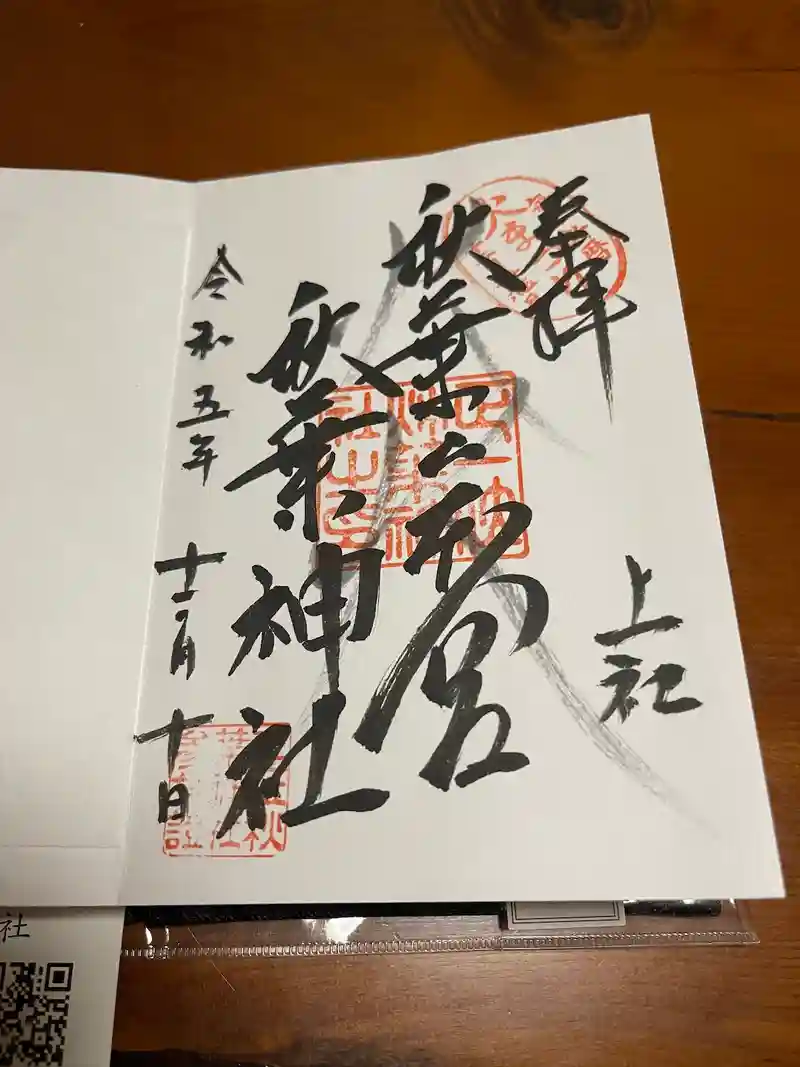 奉拝
上社
秋葉山本宮
秋葉神社
令和五年 十二月 十日
社